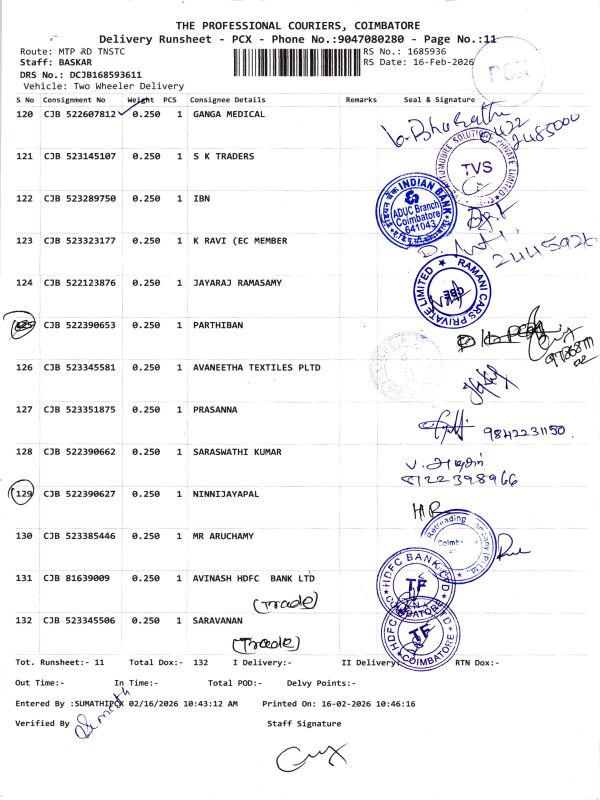 THE PROFESSIONAL COURIERS, COIMBATORE
Delivery Runsheet - PCX - Phone No.:9047080280 - Page No.:11
Route: MTP RD TNSTC RS No.: 1685936
Staff: BASKAR RS Date: 16-Feb-2026
PCX
DRS No.: DCJB168593611
Vehicle: Two Wheeler Delivery
S No Consignment No Weight PCS Consignee Details Remarks Seal & Signature
120 CJB 522607812 0.250 1 GANGA MEDICAL
b.Bharathi
0422
2485000
121 CJB 523145107 0.250 1 S K TRADERS
TVS
122 CJB 523289750 0.250 1 IBN
INDIAN BANK
ADUC Branch
Coimbatore
641043
123 CJB 523323177 0.250 1 K RAVI (EC MEMBER
124 CJB 522123876 0.250 1 JAYARAJ RAMASAMY
RAMANI CARS PRIVATE LIMITED
125 CJB 522390653 0.250 1 PARTHIBAN
126 CJB 523345581 0.250 1 AVANEETHA TEXTILES PLTD
127 CJB 523351875 0.250 1 PRASANNA
9842231150.
128 CJB 522390662 0.250 1 SARASWATHI KUMAR
8122398966
129 CJB 522390627 0.250 1 NINNIJAYAPAL
HR
130 CJB 523385446 0.250 1 MR ARUCHAMY
Retreading Company (P) Ltd
131 CJB 81639009 0.250 1 AVINASH HDFC BANK LTD
(Trade)
HDFC BANK LTD
TF
COIMBATORE
132 CJB 523345506 0.250 1 SARAVANAN
(Trade)
TF
HDFC
COIMBATORE
Tot. Runsheet:- 11 Total Dox:- 132 I Delivery:- II Delivery:- RTN Dox:-
Out Time:- In Time:- Total POD:- Delvy Points:-
Entered By :SUMATHIPCX 02/16/2026 10:43:12 AM Printed On: 16-02-2026 10:46:16
Verified By Staff Signature